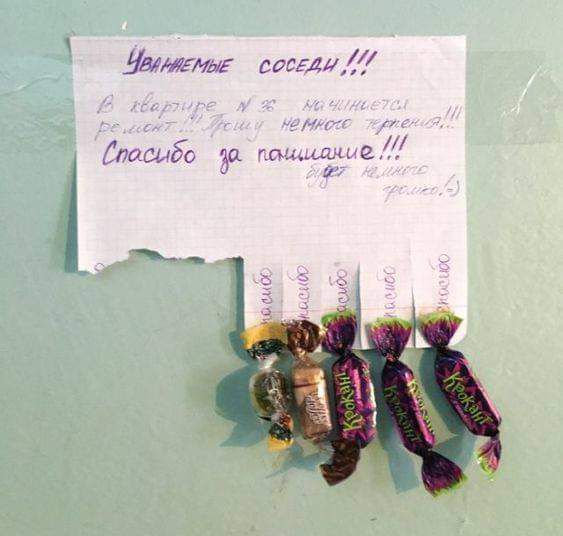 Уважаемые соседи!!!
В квартире № 36 начинается
ремонт!!! Прошу немного терпения!!!
Спасибо за понимание!!!
будет немного
громко!:-)
спасибо
спасибо
спасибо
спасибо
спасибо
Крокант
Крокант
Крокант